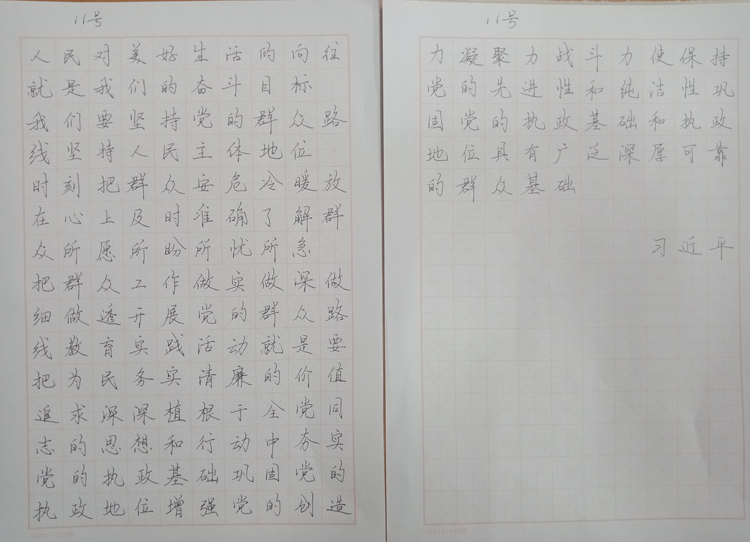 11号
人民对美好生活的向往
就是我们的奋斗目标
我们要坚持党的群众路
线坚持人民主体地位
时刻把群众安危冷暖放
在心上及时准确了解群
众所愿所盼所忧所急
把群众工作做实做深做
细做透开展党的群众路
线教育实践活动就是要
把为民务实清廉的价值
追求深深植根于全党同
志的思想和行动中夯实
党的执政基础巩固党的
执政地位增强党的创造
11号
力凝聚力战斗力使保持
党的先进性和纯洁性巩
固党的执政基础和执政
地位具有广泛深厚可靠
的群众基础
习近平